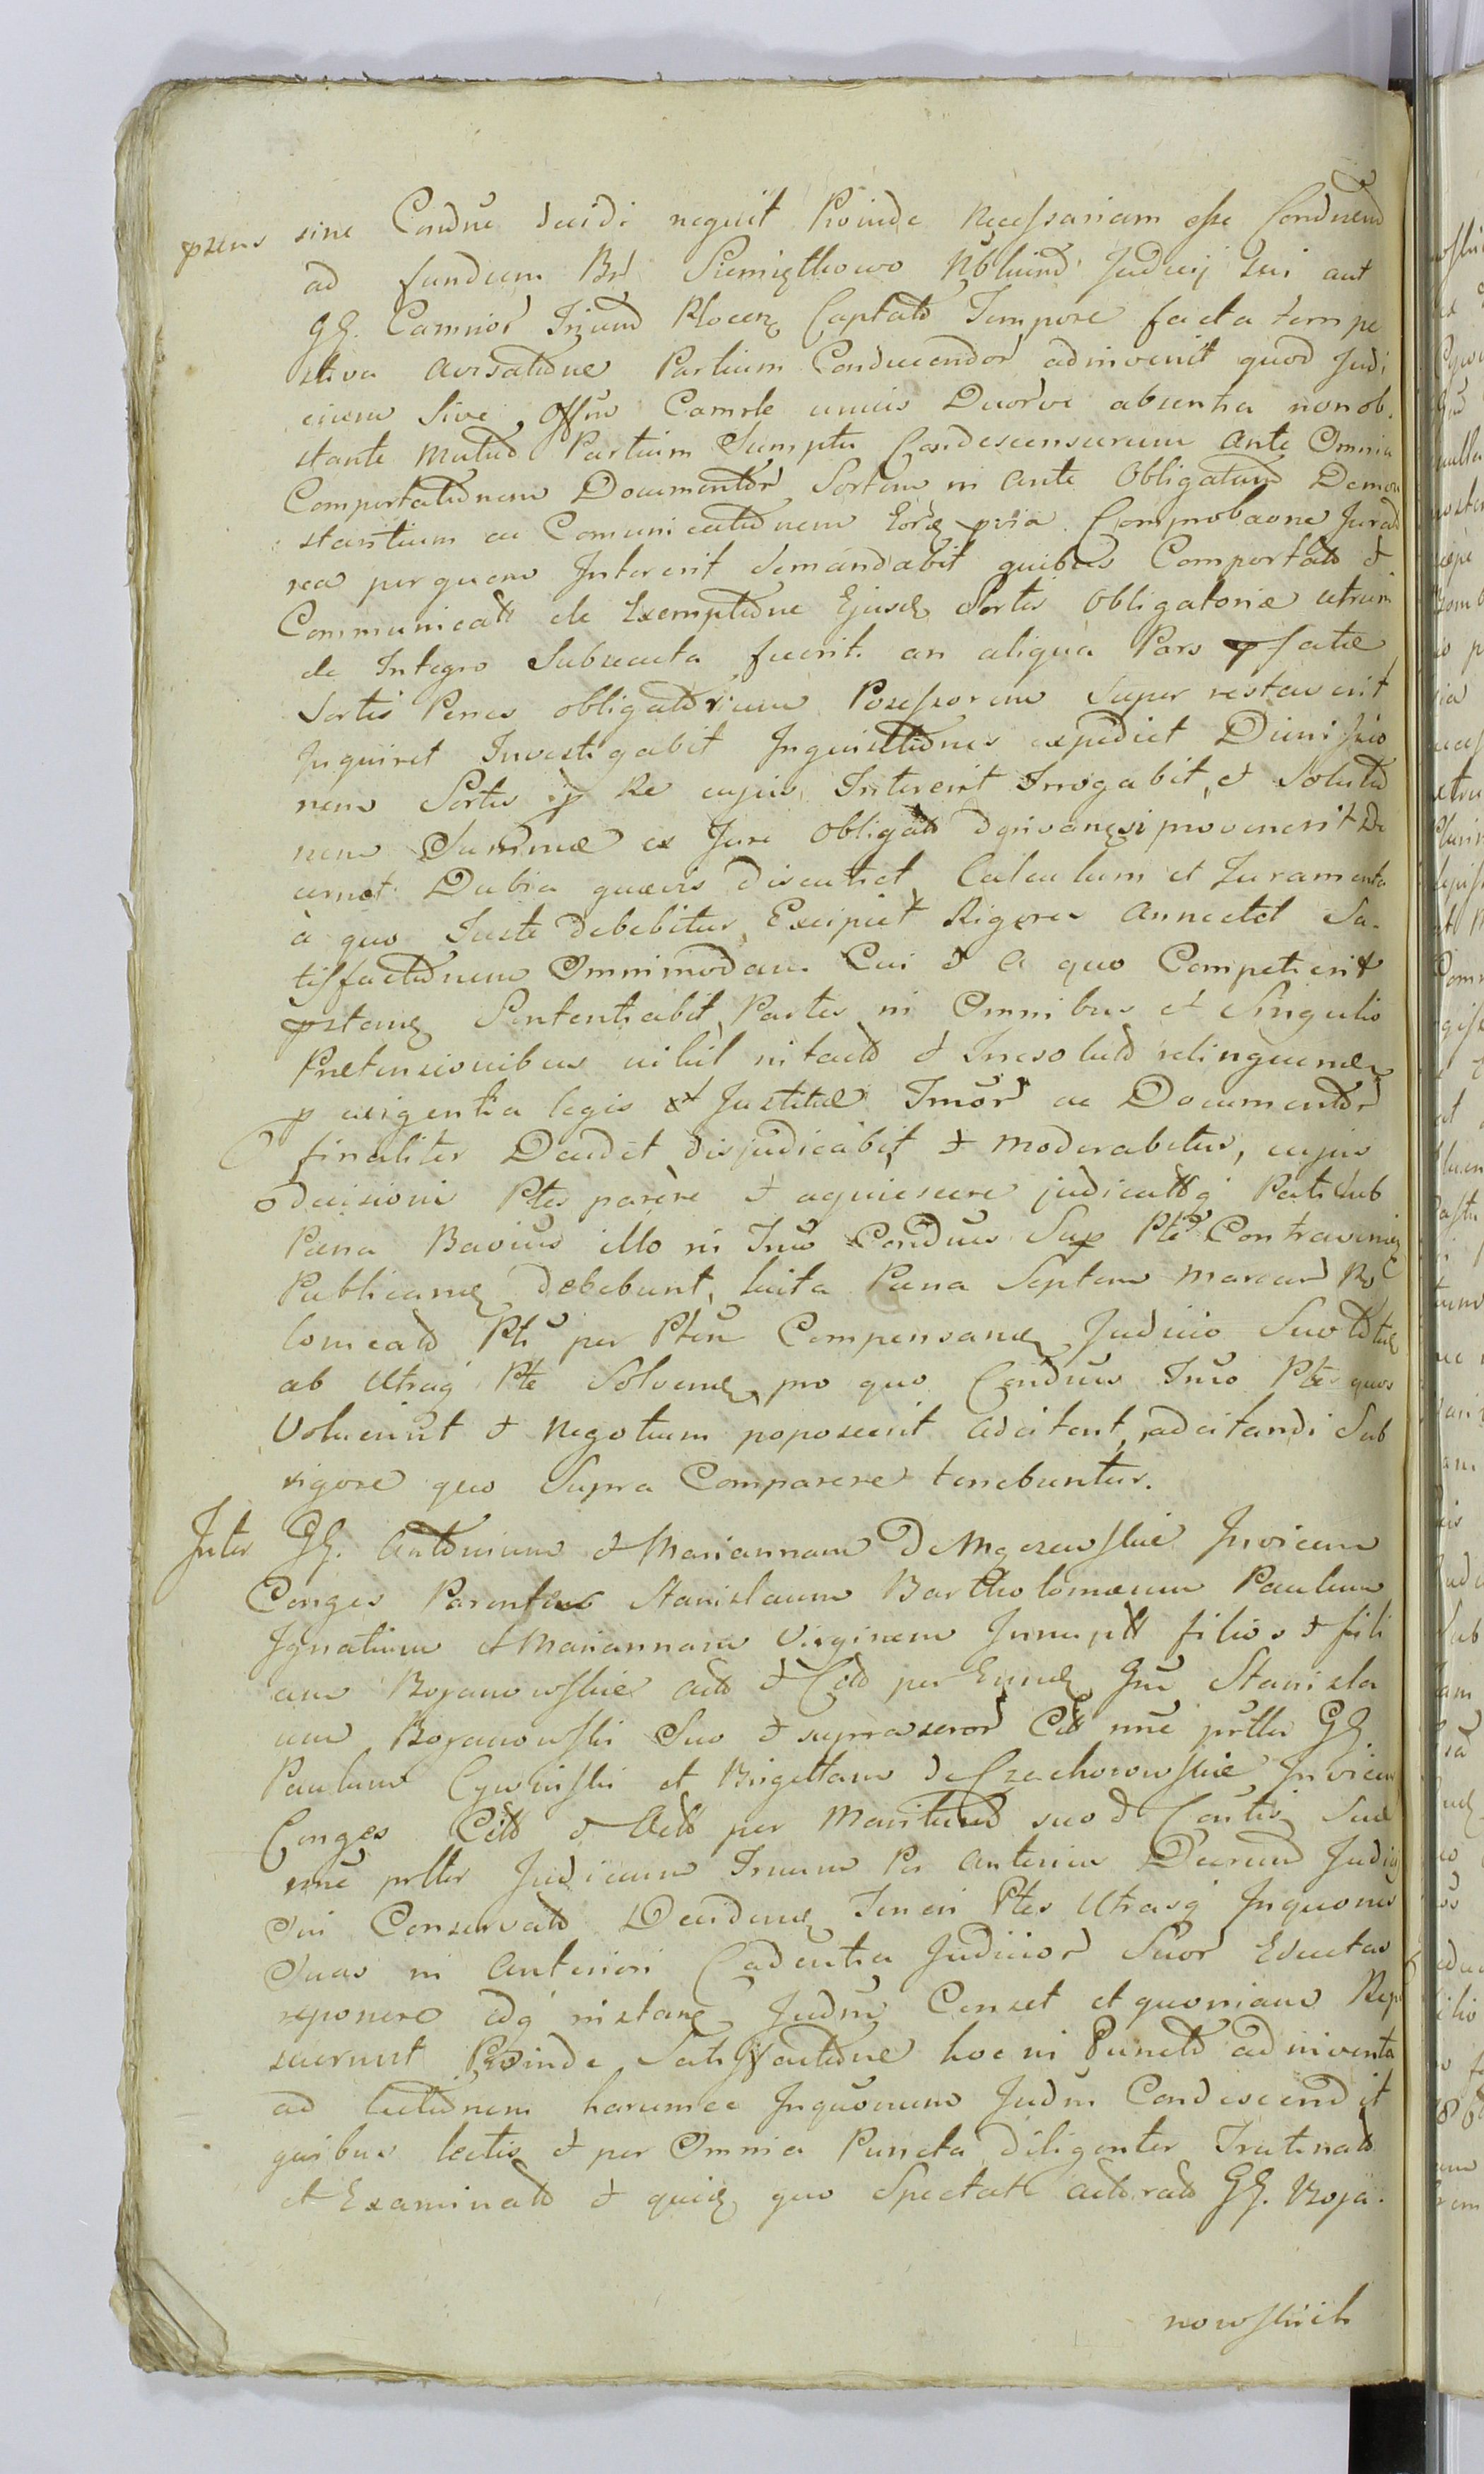 przns sine Condne decidi nequit Proinde Necessariam esse Condnem
ad fundum Bnr Siemiętkowo Nblium Judicij Sui aut
GG. Camrior Trjum Plocen Captato Tempore facta tempe
stiva avisatione Partium Conducendor adinvenit quod Judi
cium sive Offm Camrle unius Duorve absentia non ob.
stante Mutuo Partium Sumptu Condescensurum Ante Omnia
Comportationem Documentor Sortem in Ante Obligatum Demon
stantium ac Comunicationem Eorq prvia Comprobaone Jurato
rea per quem Intererit demandabit quibus Comportatis &
Communicatis de Exemptione Ejusd Sortis Obligatoriæ utrum
de Integro Subsecuta fuerit. an aliqua Pars pfatæ
Sortis Penes obligatorium Possessorem Super restaverit
Inquiret Investigabit Inquisitiones expediet Dimissio
nem Sortis p Re cujus Intererit Irrogabit, & Solutio
nem Summæ ex Jure Obligato provenerit De
cernet Dubia quævis discutiet, Calculum et Juramenta
à quo Juste debebitur, Excipiet Rigores Annectet Sa-
tisfactionem Omnimodam Cui & a quo Competierit
pstem Sententiabit, Partes in Omnibus et Singulis
Prætensionibus nihil intacto & Irresoluto relinquen
p exigentia legis et Justitiæ Jmor ac Documentor
finaliter Decidet disjudicabit & moderabitur, cujus
decisioni Ptes parere & acquiescere judicatqʒ Pati sub
Pæna Banius illo in Jnro Condnis Sup Pte Contraveni
Publican debebunt, luita Pæna Septem Marcar Po
lonicato Pti per Ptem Compensan Judicio Suo
ab Utraq Pte Solven, pro quo Condnis Jnro Ptes quos
Voluerint & Negotium poposcerit adcitent, adcitandi Sub
rigore quo Supra Comparere tenebuntur.
Inter GG. Antonium & Mariannam De Mgczewskie Invicem
Conges Parentes Stanislaum Bartholomæum Paulum
Ignatium et Mariannam Virginem Innupt filios & fili
am Bojanowskie acto & Cito per Eund Gm Stanisla
um Bojanowski Suo & supraseror Cit nne prtter GG.
Paulum Cywinski et Brigettam de Czachorowskie Invicem
Conges Cito & Acto per Maritum suo & Contis Suæ
nne prtter Judicium Trum Per Anterius Decretum Judicij
Sui Conservato Deciden Teneri Ptes Utrasqʒ Inqones
Suas in Anteriori Cadentia Judicior Suor Eductas
reponere adqʒ instan Judm Censet et quoniam Repo
suerunt Proinde Satisfactione hoc in Puncto adinventa
ad lectionem harumce Inqonum Judm Condescendit
quibus lectis & per Omnia Puncta diligenter Trutinato
et Examinato & quid quo Spectat GG. Boja-
nowskich